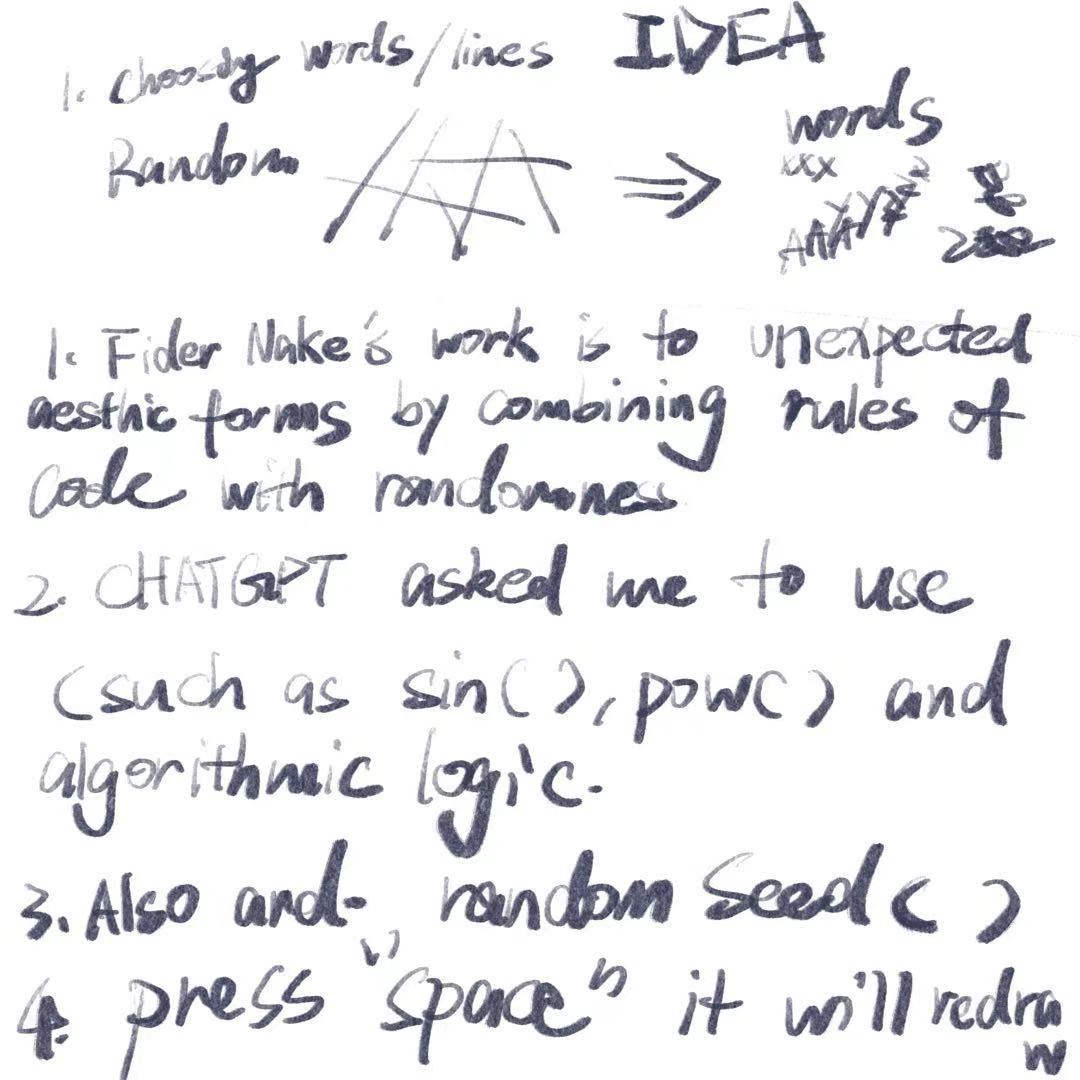 IDEA
1. choosdy words/lines
Random
words
xxx
1. Fider Nake's work is to unexpected
aesthic forms by combining rules of
code with randomness
2. CHATGPT asked me to use
(such as sin(), pow() and
algorithmic logic.
3. Also and- random Seed()
4. press "space" it will redra
w